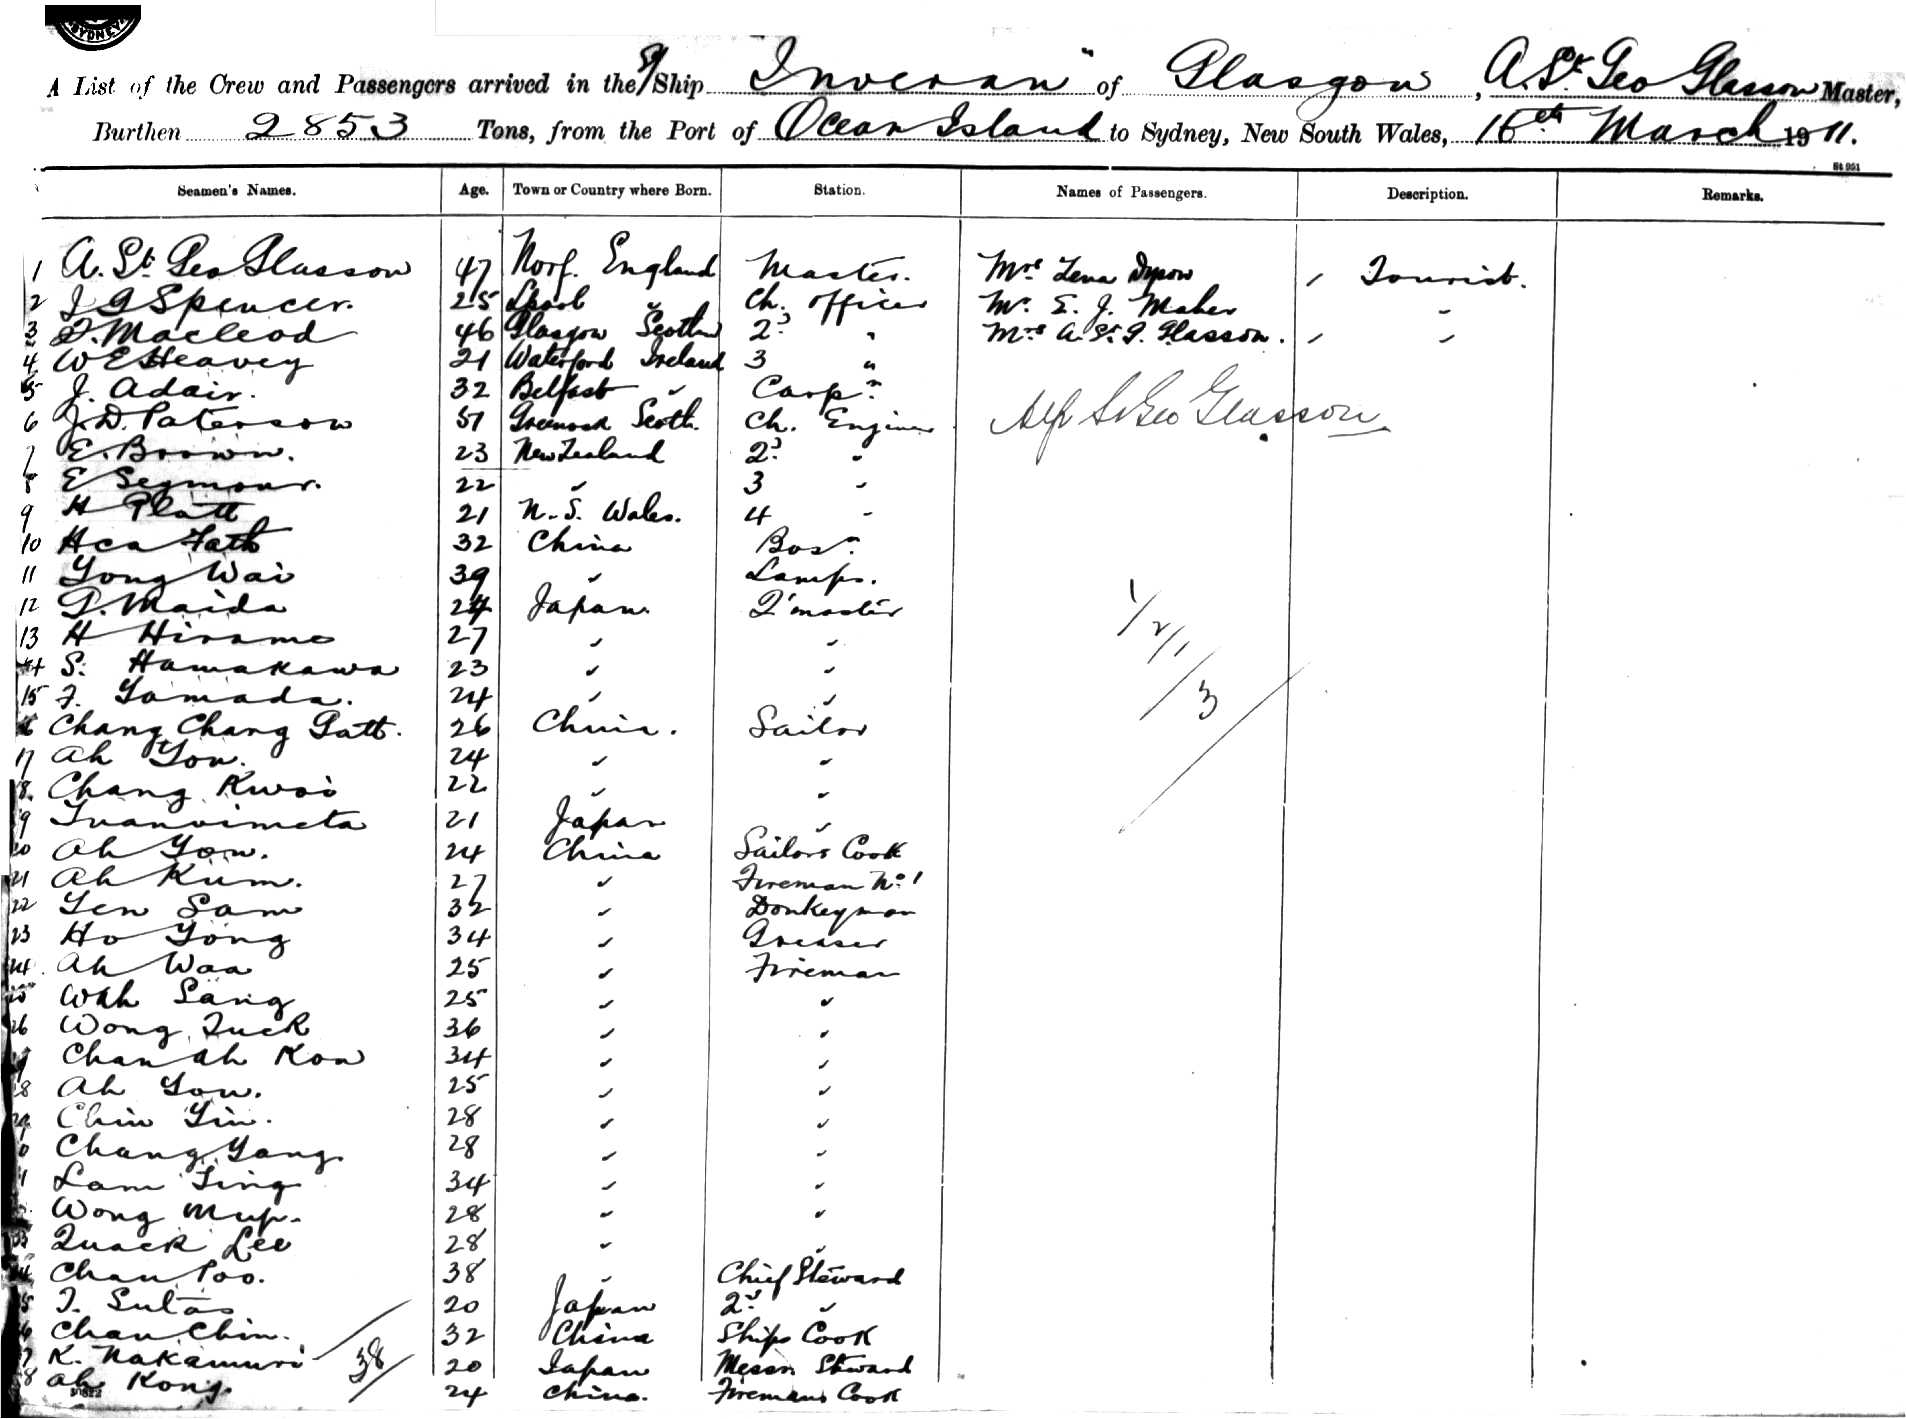 SYDNEY
A List of the Crew and Passengers arrived in the S/Ship "Inveran" of Glasgow, A. St. Geo Glasson Master,
Burthen 2853 Tons, from the Port of Ocean Island to Sydney, New South Wales, 16th March 1911.
St 951
Seamen's Names. Age. Town or Country where Born. Station. Names of Passengers. Description. Remarks.
1 A. St. Geo Glasson 47 Norf. England Master. Mrs Lena Dyson Tourist.
2 J G Spencer. 25 Lpool " Ch. Officer Mr. E. J. Maher "
3 D. Macleod 46 Glasgow Scotln 2d " Mrs A. St. G. Glasson. "
4 W E Heavey 21 Waterford Ireland 3 "
5 J. Adair. 32 Belfast " Carpr
6 J. D. Paterson 51 Greenock Scotl. Ch. Engineer Alf St Geo Glasson
7 E. Brown. 23 New Zealand 2d "
8 E Seymour. 22 " 3 "
9 H Platt 21 N. S. Wales. 4 "
10 Hea Fatt 32 China Bosn.
11 Yong Wai 39 " Lamps.
12 T. Maida 24 Japan Q'master
13 H Hirame 27 " "
14 S. Hamakawa 23 " "
15 F. Yamada. 24 " "
16 Chang Chang Gatt. 26 China. Sailor
17 Ah Yow. 24 " "
18 Chang Kwai 22 " "
19 21 Japan "
20 Ah Yow. 24 China Sailors Cook
21 Ah Kum. 27 " Fireman No. 1
22 Yen Sam 32 " Donkeyman
23 Ho Yong 34 " Greaser
24 Ah Waa 25 " Fireman
25 Wah Sang 25 " "
26 Wong Tuck 36 " "
27 Chan Ah Kow 34 " "
28 Ah Yow. 25 " "
29 Chin Yin. 28 " "
30 Chang Yang. 28 " "
31 Lam Ting 34 " "
Wong Mup. 28 " "
33 Quack Lee 28 " "
34 Chan Poo. 38 " Chief Steward
35 T. Sutas 20 Japan 2d "
36 Chan Chin. 32 China Ships Cook
37 K. Nakamuri 20 Japan Messrm Steward
38 Ah Kong. 24 China. Firemans Cook
38